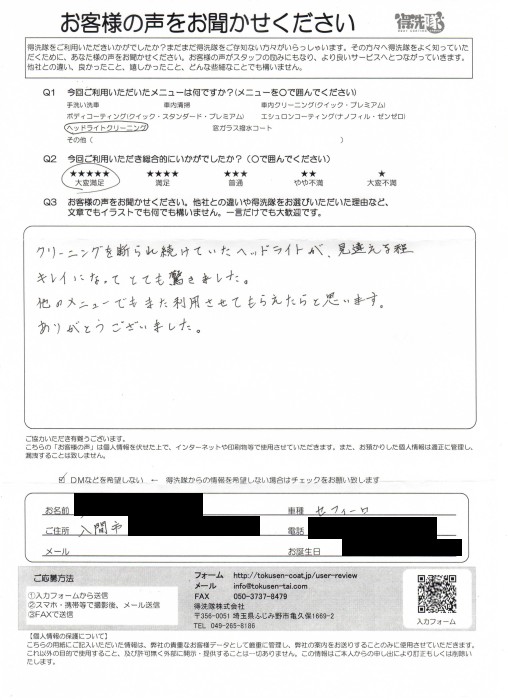 お客様の声をお聞かせください
得洗隊
得洗隊をご利用いただきいかがでしたか?まだまだ得洗隊をご存知ない方々がいらっしゃいます。その方々へ得洗隊をよく知っていた
だくために、あなた様の声をお聞かせください。お客様の声がスタッフの励みにもなり、より良いサービスへとつながっていきます。
他社との違い、良かったこと、嬉しかったこと、どんな些細なことでも構いません。
Q1 今回ご利用いただいたメニューは何ですか?(メニューを○で囲んでください)
手洗い洗車 車内清掃 車内クリーニング(クイック・プレミアム)
ボディコーティング(クイック・スタンダード・プレミアム) エシュロンコーティング(ナノフィル・ゼンゼロ)
ヘッドライトクリーニング 窓ガラス撥水コート
その他( )
Q2 今回ご利用いただき総合的にいかがでしたか?(○で囲んでください)
★★★★★ ★★★★ ★★★ ★★ ★
大変満足 満足 普通 やや不満 大変不満
Q3 お客様の声をお聞かせください。他社との違いや得洗隊をお選びいただいた理由など、
文章でもイラストでも何でも構いません。一言だけでも大歓迎です。
クリーニングを断られ続けていたヘッドライトが、見違える程
キレイになってとても驚きました。
他のメニューでもまた利用させてもらえたらと思います。
ありがとうございました。
ご協力いただき有難うございます。
こちらの「お客様の声」は個人情報を伏せた上で、インターネットや印刷物等で使用させていただきます。また、お預かりした個人情報は適正に管理し、
漏洩することは致しません。
☑ DMなどを希望しない ← 得洗隊からの情報を希望しない場合はチェックをお願い致します
お名前 車種 セフィーロ
ご住所 入間市 電話
メール お誕生日
ご応募方法
①入力フォームから送信
②スマホ・携帯等で撮影後、メール送信
③FAXで送信
フォーム http://tokusen-coat.jp/user-review
メール info@tokusen-tai.com
FAX 050-3737-8479
得洗隊株式会社
〒356-0051 埼玉県ふじみ野市亀久保1669-2
TEL 049-265-8186
入力フォーム
【個人情報の保護について】
こちらの用紙にご記入いただいた情報は、弊社の貴重なお客様データとして厳重に管理し、弊社の案内をお送りすることのみに使用させていただきます。
これ以外の目的で使用すること、及び許可無く外部に開示・提供することは一切ありません。この情報はご本人からの申し出により訂正もしくは削除い
たします。